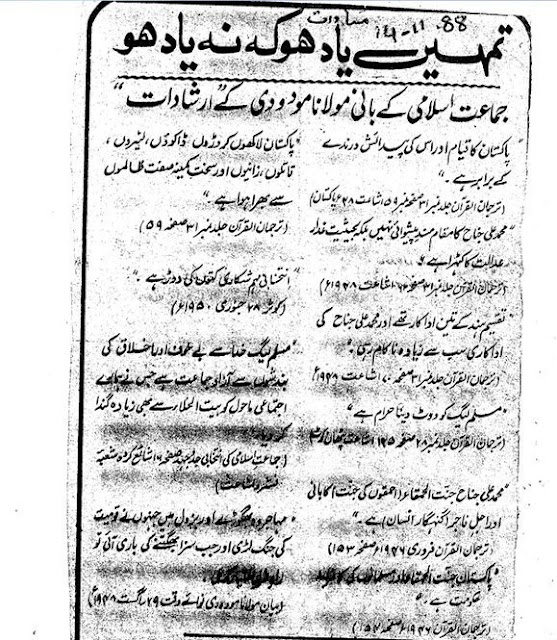 مساوات
14-11-88
تمہیں یاد ہو کہ نہ یاد ہو
جماعت اسلامی کے بانی مولانا مودودی کے "ارشادات"
پاکستان کا قیام اور اس کی پیدائش درندے
کے برابر ہے۔"
(ترجمان القرآن جلد نمبر ۳۱ صفحہ نمبر ۵۹ اشاعت ۴۸ء پاکستان)
"محمد علی جناح کا مقام مسند پیشوائی نہیں بلکہ بحیثیت غدار
عدالت کا کٹہرا ہے۔
(ترجمان القرآن جلد نمبر ۳۱ صفحہ اشاعت ۱۹۴۸ء)
تقسیم ہند کے تین اداکار تھے اور محمد علی جناح کی
اداکاری سب سے زیادہ ناکام رہی۔"
(ترجمان القرآن جلد نمبر ۳۱ صفحہ ۷۰ اشاعت ۱۹۴۸ء)
"مسلم لیگ کو ووٹ دینا حرام ہے"
(ترجمان القرآن جلد نمبر ۲۸ صفحہ ۱۲۵ اشاعت پٹھان کوٹ)
"محمد علی جناح جنت الحمقاء (احمقوں کی جنت) کا بانی
اور اجل فاجر (گنہگار انسان) ہے۔"
(ترجمان القرآن فروری ۱۹۴۶ء صفحہ ۱۵۳)
"پاکستان جنت الحمقاء اور مسلمانوں کی کافرانہ
حکومت ہے۔"
(ترجمان القرآن ۱۹۴۶ء صفحہ ۱۵۴)
"پاکستان لاکھوں کروڑوں ڈاکوؤں، لٹیروں،
قاتلوں، زانیوں اور سخت کمینہ صفت ظالموں
سے بھرا ہوا ہے۔"
(ترجمان القرآن جلد نمبر ۳۱ صفحہ ۵۹)
"انتخابی مہم شکاری کتوں کی دوڑ ہے۔"
(کوثر ۲۸ جنوری ۱۹۵۰ء)
"مسلم لیگ خدا سے بے خوف اور اخلاق کی
بندشوں سے آزاد جماعت ہے جس نے ہمارے
اجتماعی ماحول کو بیت الخلاء سے بھی زیادہ گندا
کر دیا۔"
(جماعت اسلامی کی انتخابی جدوجہد صفحہ ۱۶ شائع کردہ شعبہ
نشر و اشاعت)
"مہاجرہ بھگوڑے اور بزدل ہیں جنہوں نے قومیت
کی جنگ لڑی اور جب سزا بھگتنے کی باری آئی تو
(بیان مولانا مودودی نوائے وقت ۲۹ اگست ۱۹۴۸ء)